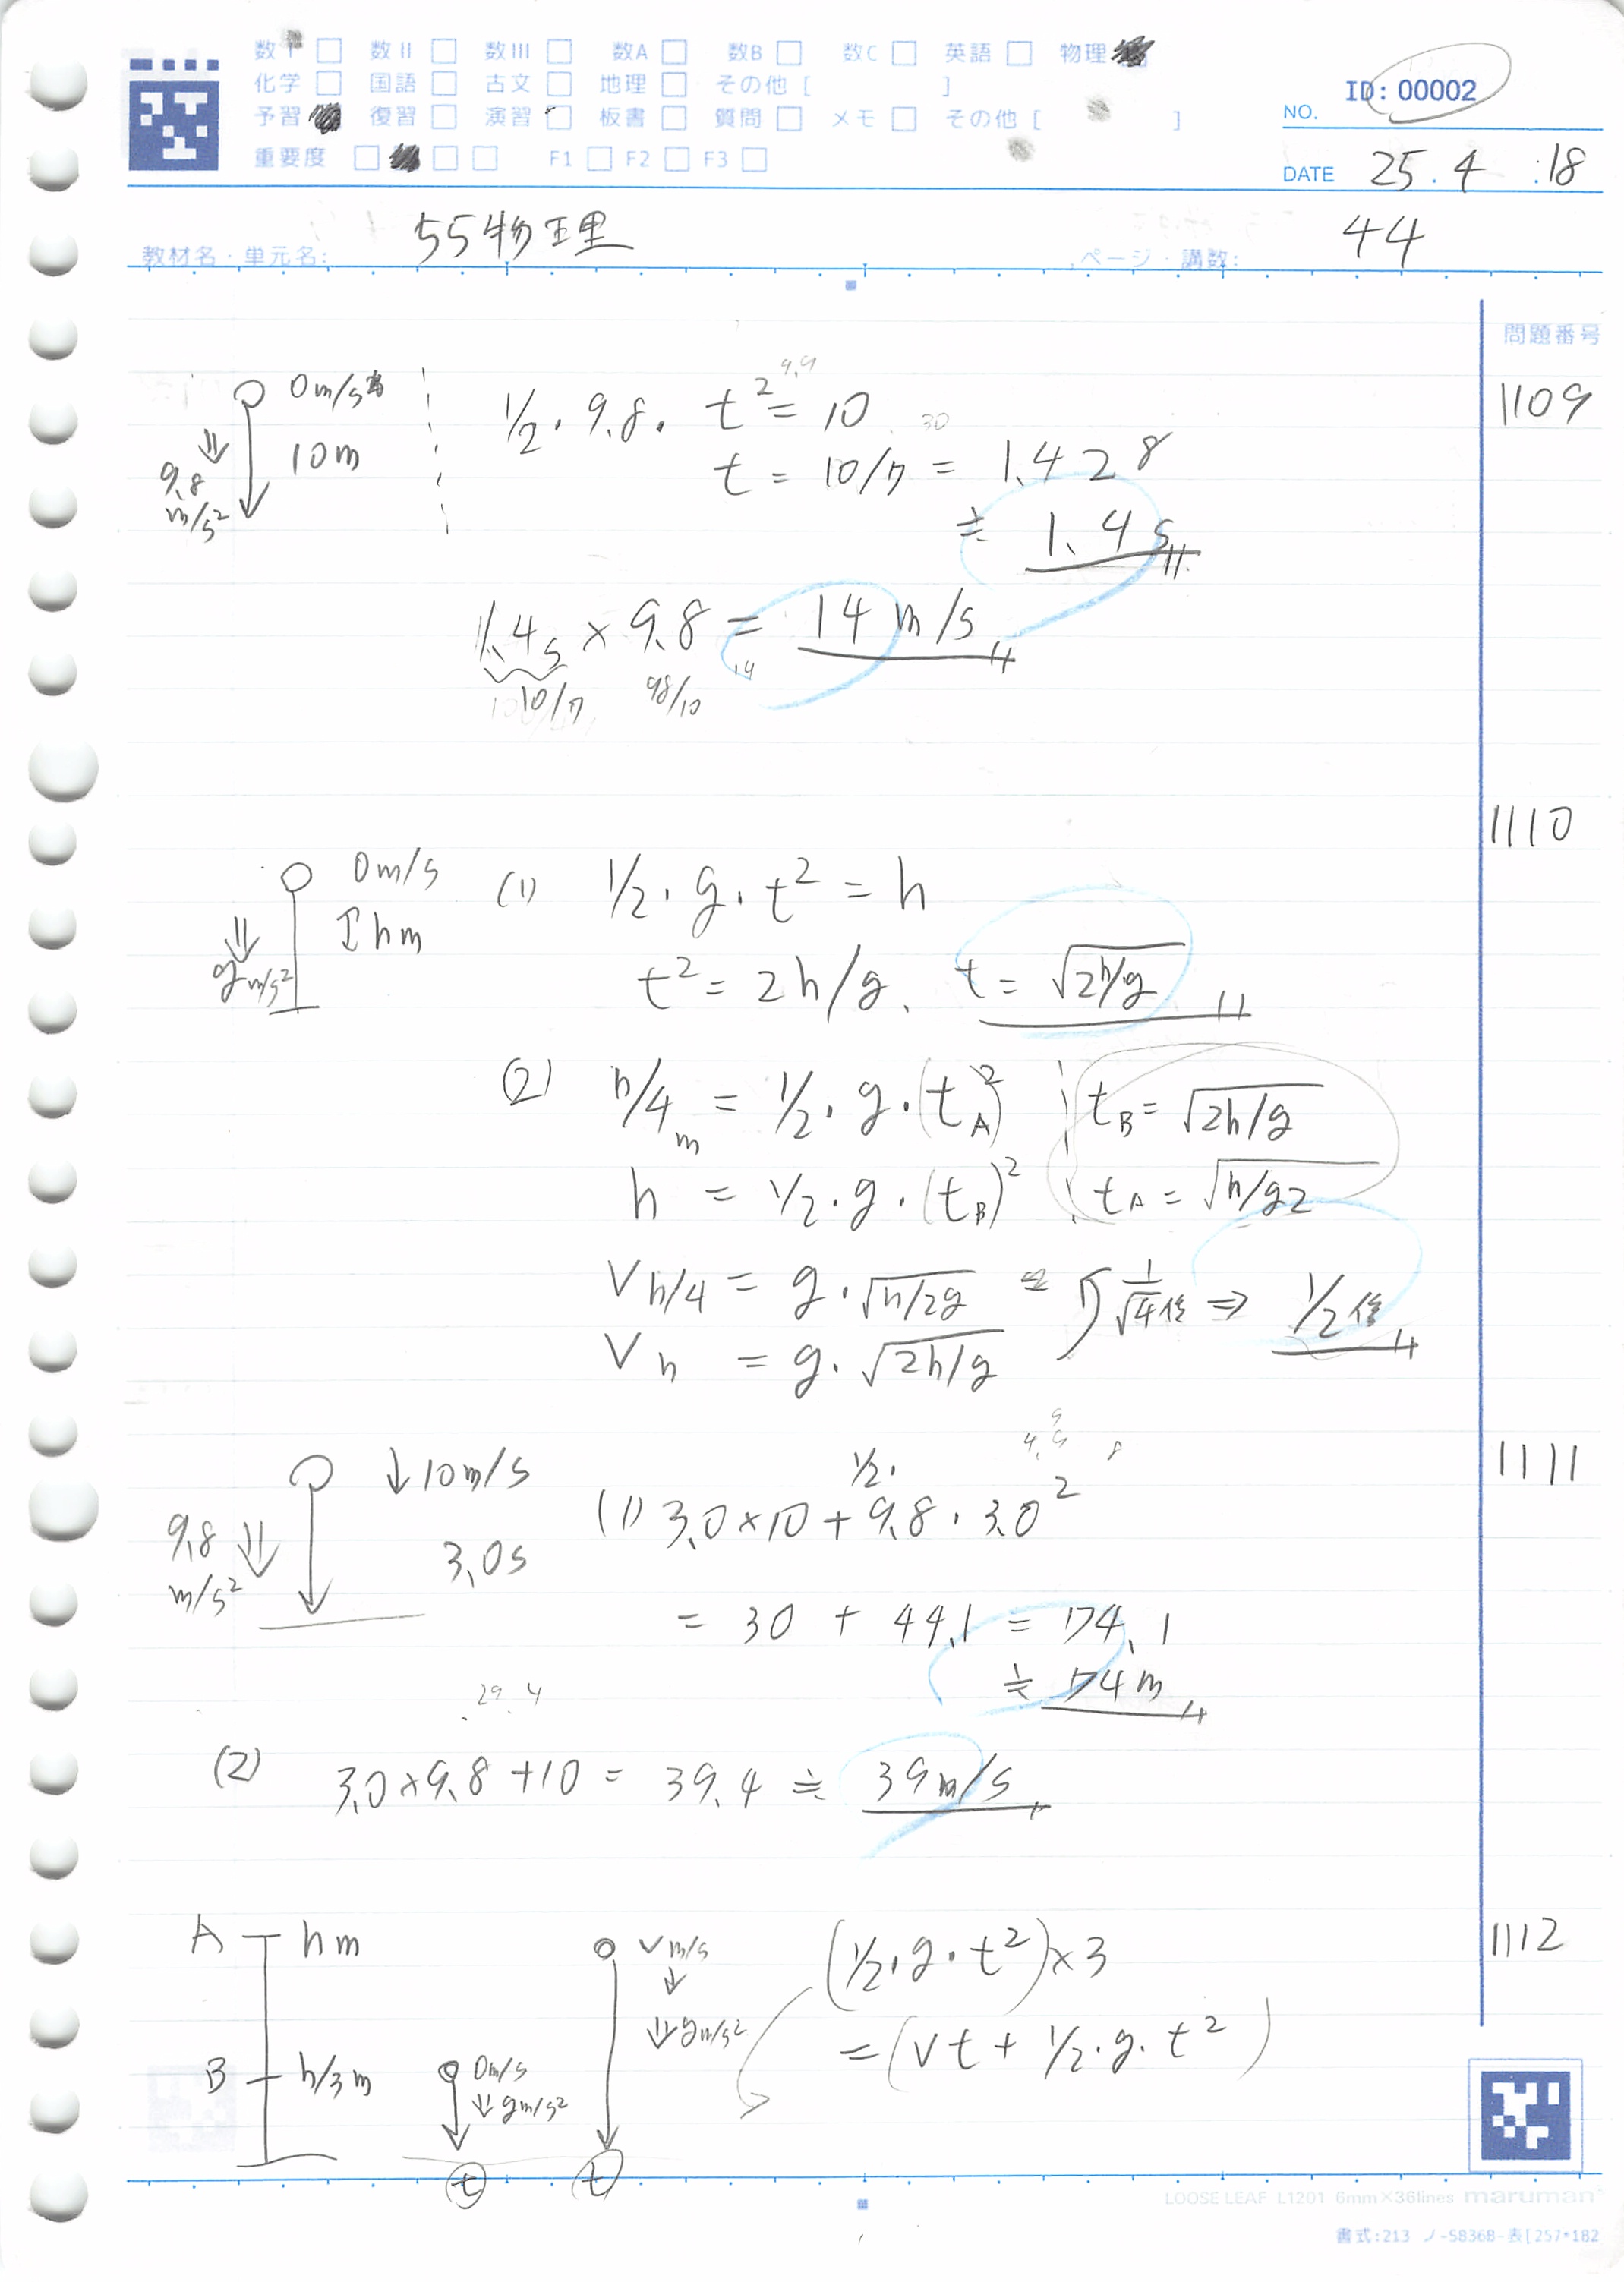 数I □ 数II □ 数III □ 数A □ 数B □ 数C □ 英語 □ 物理
化学 □ 国語 □ 古文 □ 地理 □ その他 [ ]
予習 復習 □ 演習 □ 板書 □ 質問 □ メモ □ その他 [ ]
重要度 □ □ □ F1 □ F2 □ F3 □
ID: 00002
NO.
DATE 25.4.18
教材名・単元名: 55物理
ページ・講数: 44
問題番号
1109
0m/s
10m
9.8
m/s²
1/2・9.8・t²=10
4.9
t = 10/7 = 1.428
≒ 1.4s
1.4s × 9.8 = 14m/s
10/7 98/10 1.4
1110
0m/s
hm
g m/s²
(1) 1/2・g・t² = h
t² = 2h/g. t = √2h/g
(2) h/4 m = 1/2・g・(tA)² tB = √2h/g
h = 1/2・g・(tB)² tA = √h/g2
Vh/4 = g・√h/2g 1/√4倍 ⇒ 1/2倍
Vh = g・√2h/g
1111
↓10m/s
3.0s
9.8
m/s²
1/2・
(1) 3.0×10+9.8・3.0²
= 30 + 44.1 = 74.1
≒ 74m
29.4
(2) 3.0×9.8+10 = 39.4 ≒ 39m/s
1112
A hm
B h/3m
0m/s
↓↓gm/s²
t
Vm/s
↓
↓↓gm/s²
t
(1/2・g・t²)×3
=(vt+1/2・g・t²)
LOOSE LEAF L1201 6mm×36lines maruman
書式:213 ノ-S836B-表[257*182